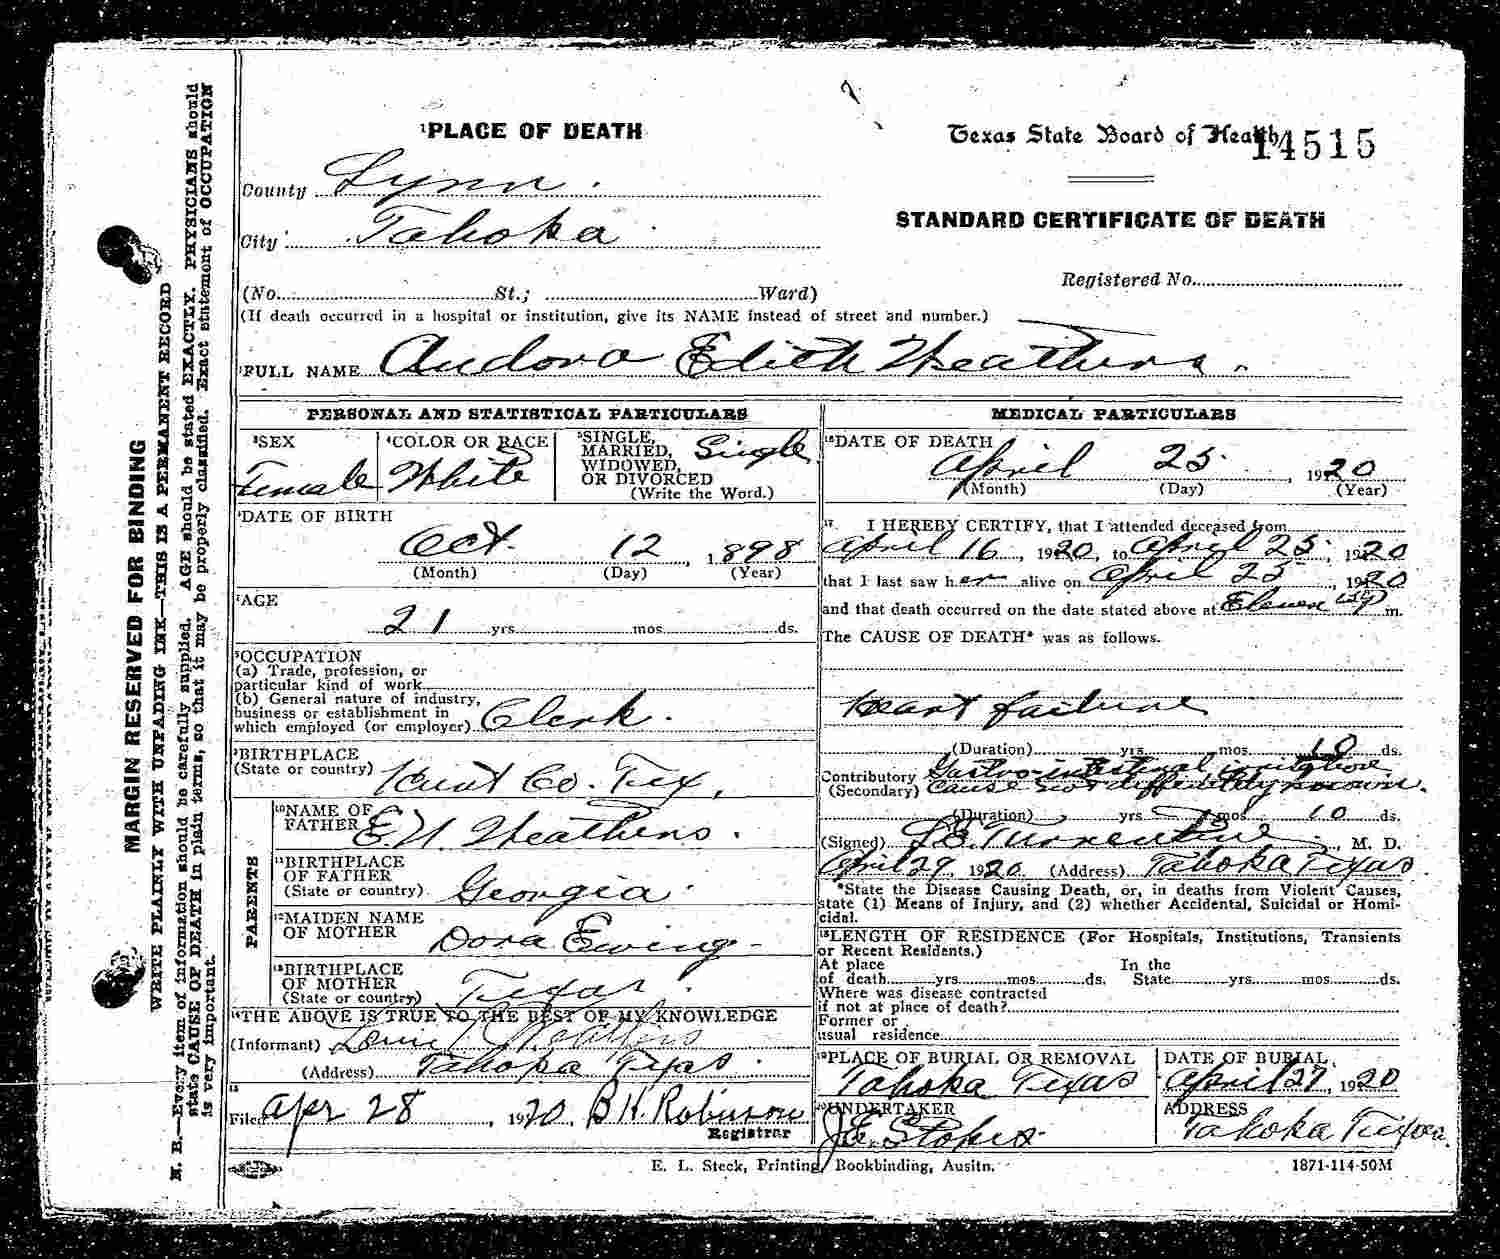 ¹PLACE OF DEATH
Texas State Board of Health
14515
County Lynn.
City Tahoka
STANDARD CERTIFICATE OF DEATH
Registered No.
(No. St.; Ward)
(If death occurred in a hospital or institution, give its NAME instead of street and number.)
²FULL NAME Audora Edith Weathers.
PERSONAL AND STATISTICAL PARTICULARS
³SEX
Female
⁴COLOR OR RACE
White
⁵SINGLE,
MARRIED,
WIDOWED,
OR DIVORCED
(Write the Word.)
Single
⁶DATE OF BIRTH
Oct. 12, 1898
(Month) (Day) (Year)
⁷AGE
21 yrs. mos. ds.
⁸OCCUPATION
(a) Trade, profession, or
particular kind of work
(b) General nature of industry,
business or establishment in
which employed (or employer) Clerk.
⁹BIRTHPLACE
(State or country) Hunt Co. Tex,
PARENTS
¹⁰NAME OF
FATHER Weathers.
¹¹BIRTHPLACE
OF FATHER
(State or country) Georgia.
¹²MAIDEN NAME
OF MOTHER Dora Ewing
¹³BIRTHPLACE
OF MOTHER
(State or country) Texas.
¹⁴THE ABOVE IS TRUE TO THE BEST OF MY KNOWLEDGE
(Informant) Weathers
(Address) Tahoka Texas.
¹⁵
Filed Apr 28, 1920. B H. Robinson
Registrar
MEDICAL PARTICULARS
¹⁶DATE OF DEATH
April 25, 1920
(Month) (Day) (Year)
¹⁷ I HEREBY CERTIFY, that I attended deceased from
April 16, 1920, to April 25, 1920
that I last saw her alive on April 25, 1920
and that death occurred on the date stated above at Eleven P m.
The CAUSE OF DEATH* was as follows.
Heart failure
(Duration) yrs. mos. 10 ds.
Contributory Gastro-intestinal
(Secondary) cause not known.
(Duration) yrs. mos. 10 ds.
(Signed) Turrentine, M. D.
April 29, 1920. (Address) Tahoka Texas
*State the Disease Causing Death, or, in deaths from Violent Causes,
state (1) Means of Injury, and (2) whether Accidental, Suicidal or Homi-
cidal.
¹⁸LENGTH OF RESIDENCE (For Hospitals, Institutions, Transients
or Recent Residents.)
At place In the
of death yrs. mos. ds. State yrs. mos. ds.
Where was disease contracted
if not at place of death?
Former or
usual residence
¹⁹PLACE OF BURIAL OR REMOVAL
Tahoka Texas
DATE OF BURIAL
April 27, 1920
²⁰UNDERTAKER
J.E. Stokes.
ADDRESS
Tahoka Texas.
E. L. Steck, Printing, Bookbinding, Ausitn.
1871-114-50M
MARGIN RESERVED FOR BINDING
WRITE PLAINLY WITH UNFADING INK—THIS IS A PERMANENT RECORD
N. B.—Every item of information should be carefully supplied. AGE should be stated EXACTLY. PHYSICIANS should
state CAUSE OF DEATH in plain terms, so that it may be properly classified. Exact statement of OCCUPATION
is very important.